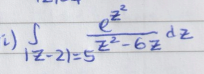 i) ∫_{|z-2|=5} e^{z^2} / (z^2 - 6z) dz